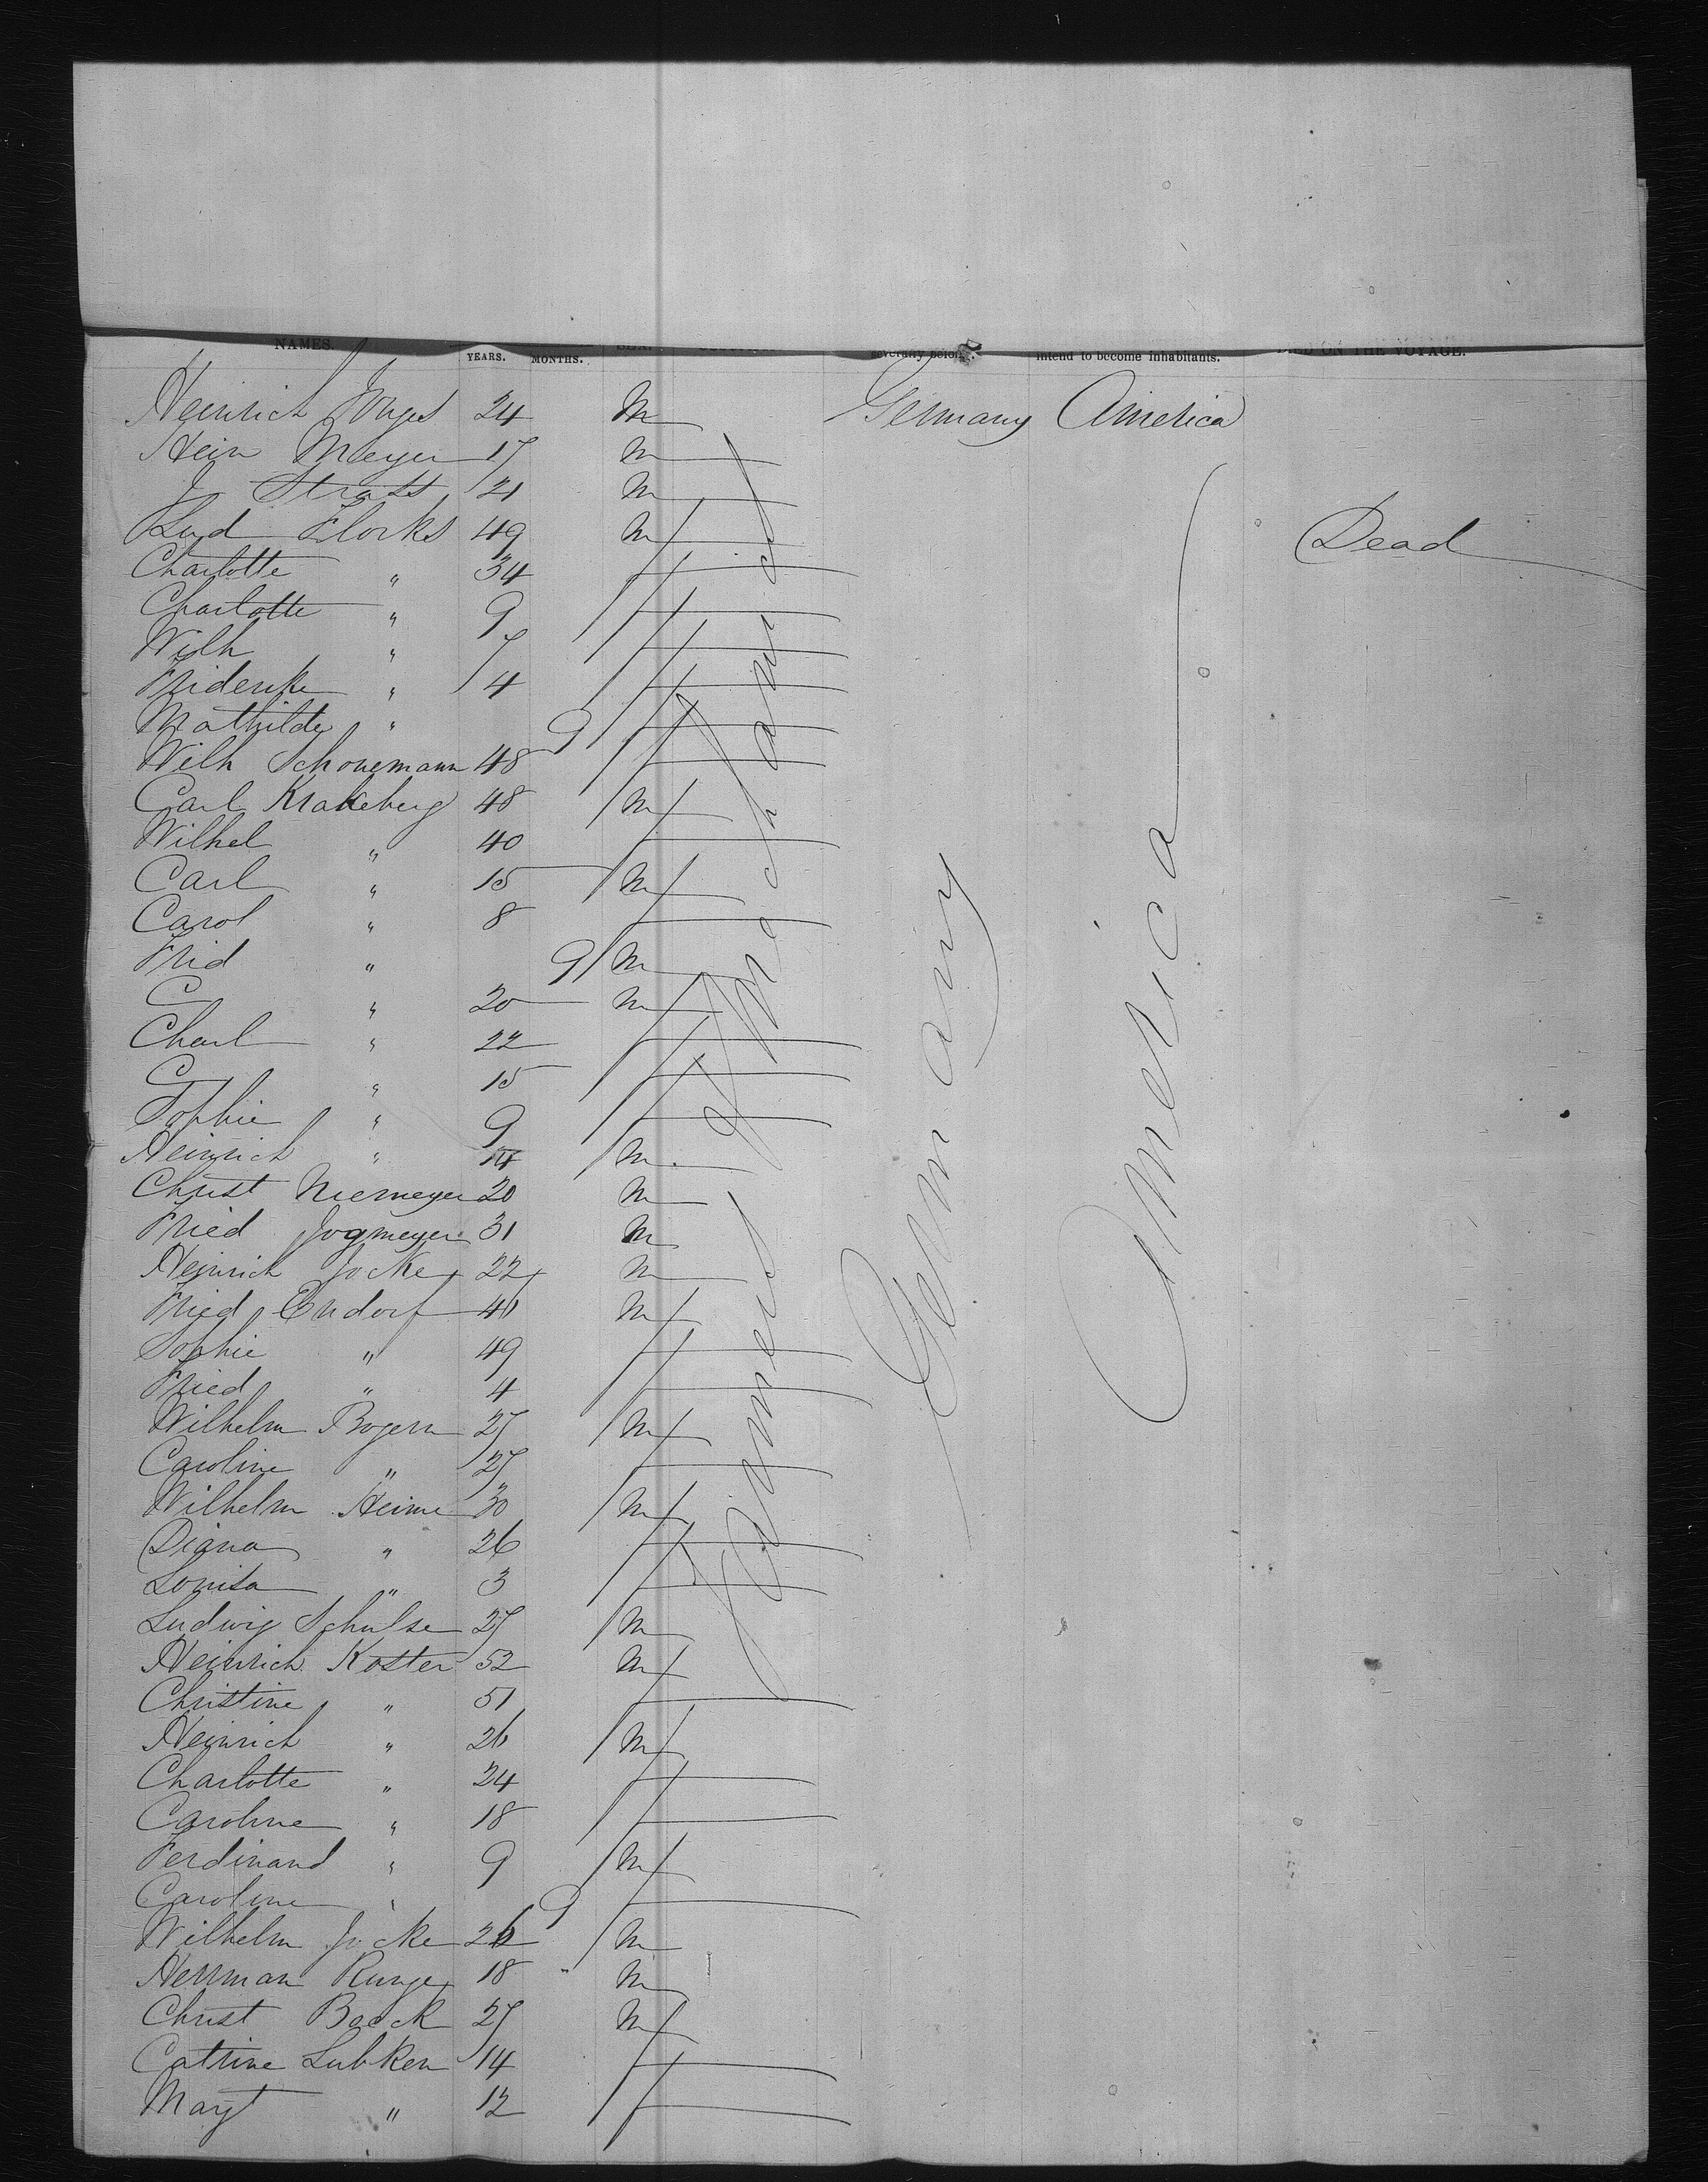 NAMES. YEARS. MONTHS. intend to become inhabitants. DIED ON THE VOYAGE.
Heinrich 24 M Germany America
Hein Meyer 17 M
J Strass 21 M
Lud Florks 49 M Dead
Charlotte " 34 f
Charlotte " 9 f
Wilh " 7 f
Friderike " 4 f
Mathilde " 9 f
Wilh Schonemann 48 f
Carl Krakeberg 48 M
Wilhel " 40 f
Carl " 15 M
Carol " 8 f
Frid " 9 M
C " 20 M
Charl " 22 f
C " 15 f
Sophie " 9 f
Heinrich " 14 M
Christ Niemeyer 20 M
Fried Jogmeyer 31 M
Heinrich Jocke 22 M
Fried Endorf 41 M
Sophie " 49 f
Fried " 4 f
Wilhelm Bogern 27 M
Caroline " 27 f
Wilhelm Heime 30 M
Diana " 26 f
Louisa " 3 f
Ludwig Schulse 27 M
Heinrich Koster 52 M
Christine " 51 f
Heinrich " 26 M
Charlotte " 24 f
Caroline " 18 f
Ferdinand " 9 M
Caroline " 9 f
Wilhelm Jocke 26 M
Herrman Runge 18 " M
Christ Boock 27 M
Catrine Lubken 14 f
Mary " 12 f
Farmers & Mechanics
Germany
America